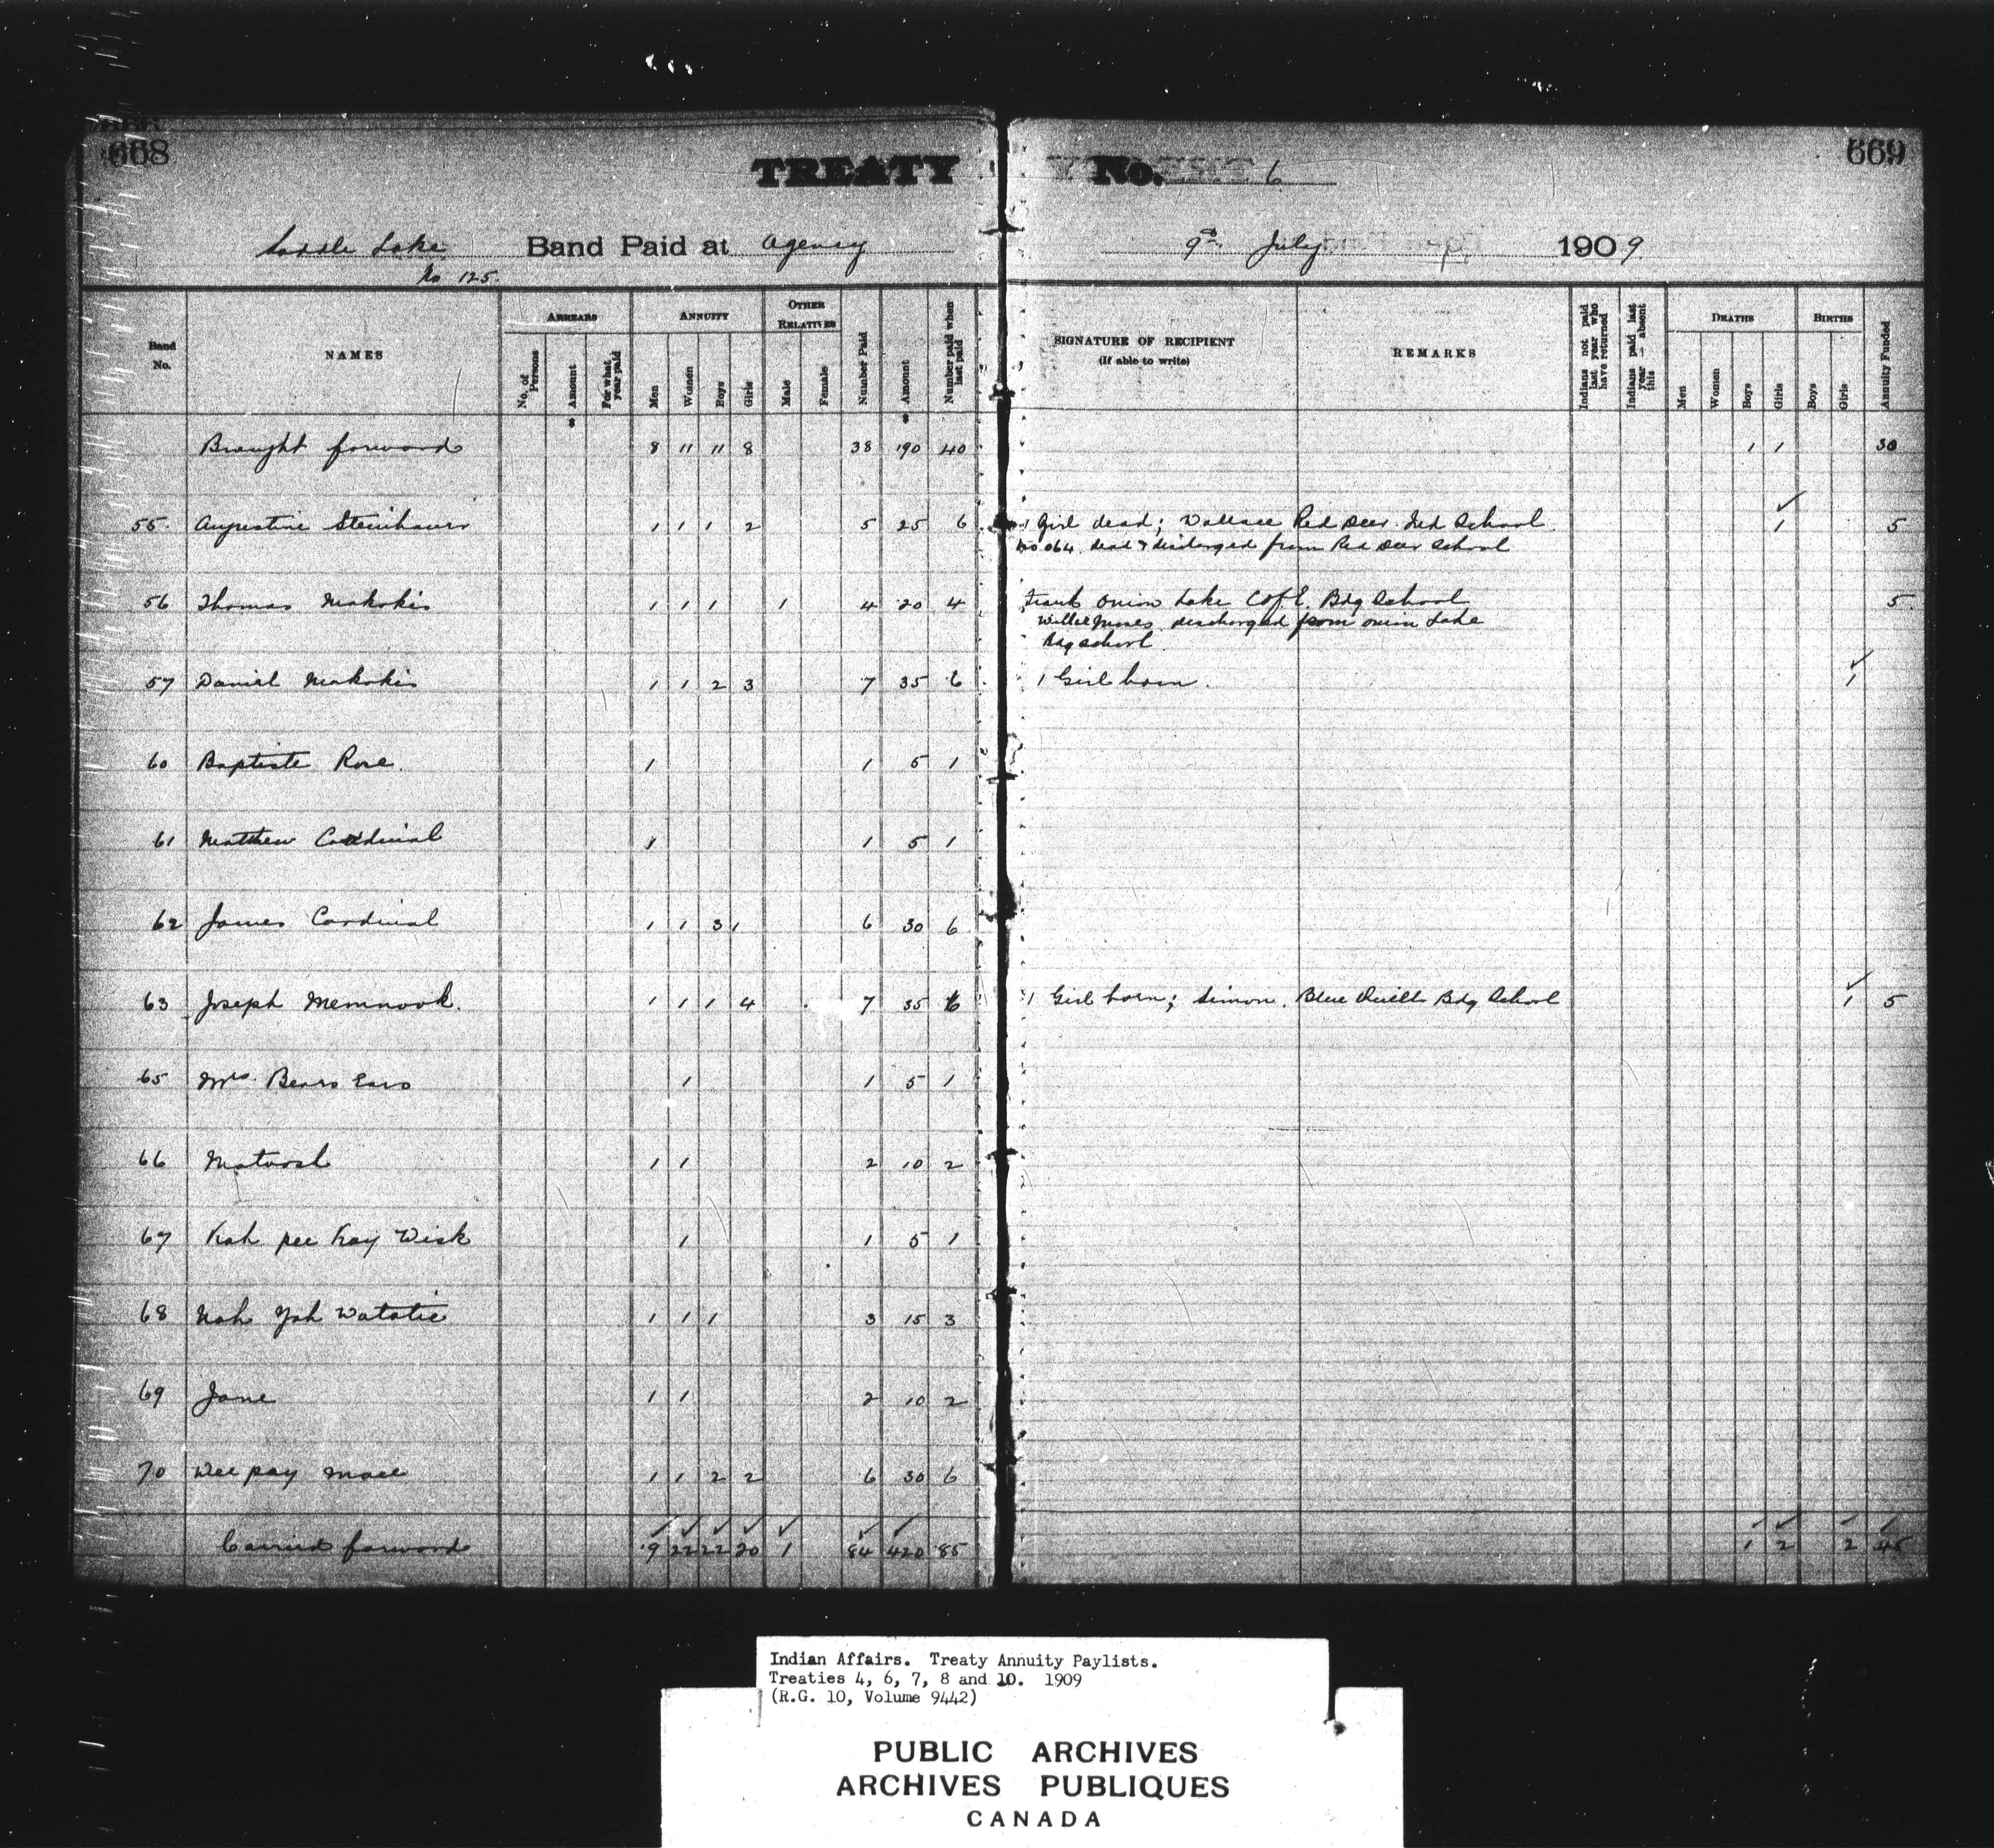 668
669
TREATY No. 6
Saddle Lake Band Paid at Agency 9th July 1909
No 125.
Band No.
NAMES
ARREARS
No. of Persons
Amount $
For what year paid
ANNUITY
Men
Women
Boys
Girls
OTHER RELATIVES
Male
Female
Number Paid
Amount $
Number paid when last paid
SIGNATURE OF RECIPIENT
(If able to write)
REMARKS
Indians not paid last year who have returned
Indians paid last year — absent this
DEATHS
Men
Women
Boys
Girls
BIRTHS
Boys
Girls
Annuity Funded
Brought forward 8 11 11 8 38 190 40 1 1 30
55 Augustine Steinhauer 1 1 1 2 5 25 6 1 Girl dead; Wallace Red Deer Ind School 1 5
No 064 dead & discharged from Red Deer School
56 Thomas Makokis 1 1 1 1 4 20 4 Frank Onion Lake C of E. Bdg School 5
discharged from Onion Lake
Bdg School
57 Daniel Makokis 1 1 2 3 7 35 6 1 Girl born. 1
60 Baptiste Rose. 1 1 5 1
61 Matthew Cardinal 1 1 5 1
62 James Cardinal 1 1 3 1 6 30 6
63 Joseph Memnook. 1 1 1 4 7 35 6 1 Girl born; Simon, Blue Quills Bdg School 1 5
65 Mrs. Bears Ears 1 1 5 1
66 1 1 2 10 2
67 Kah pee Kay Wisk 1 1 5 1
68 Nah Yah Watatie 1 1 1 3 15 3
69 Jane 1 1 2 10 2
70 Wee pay 1 1 2 2 6 30 6
Carried forward 19 22 22 20 1 84 420 85 1 2 2 45
Indian Affairs. Treaty Annuity Paylists.
Treaties 4, 6, 7, 8 and 10. 1909
(R.G. 10, Volume 9442)
PUBLIC ARCHIVES
ARCHIVES PUBLIQUES
CANADA